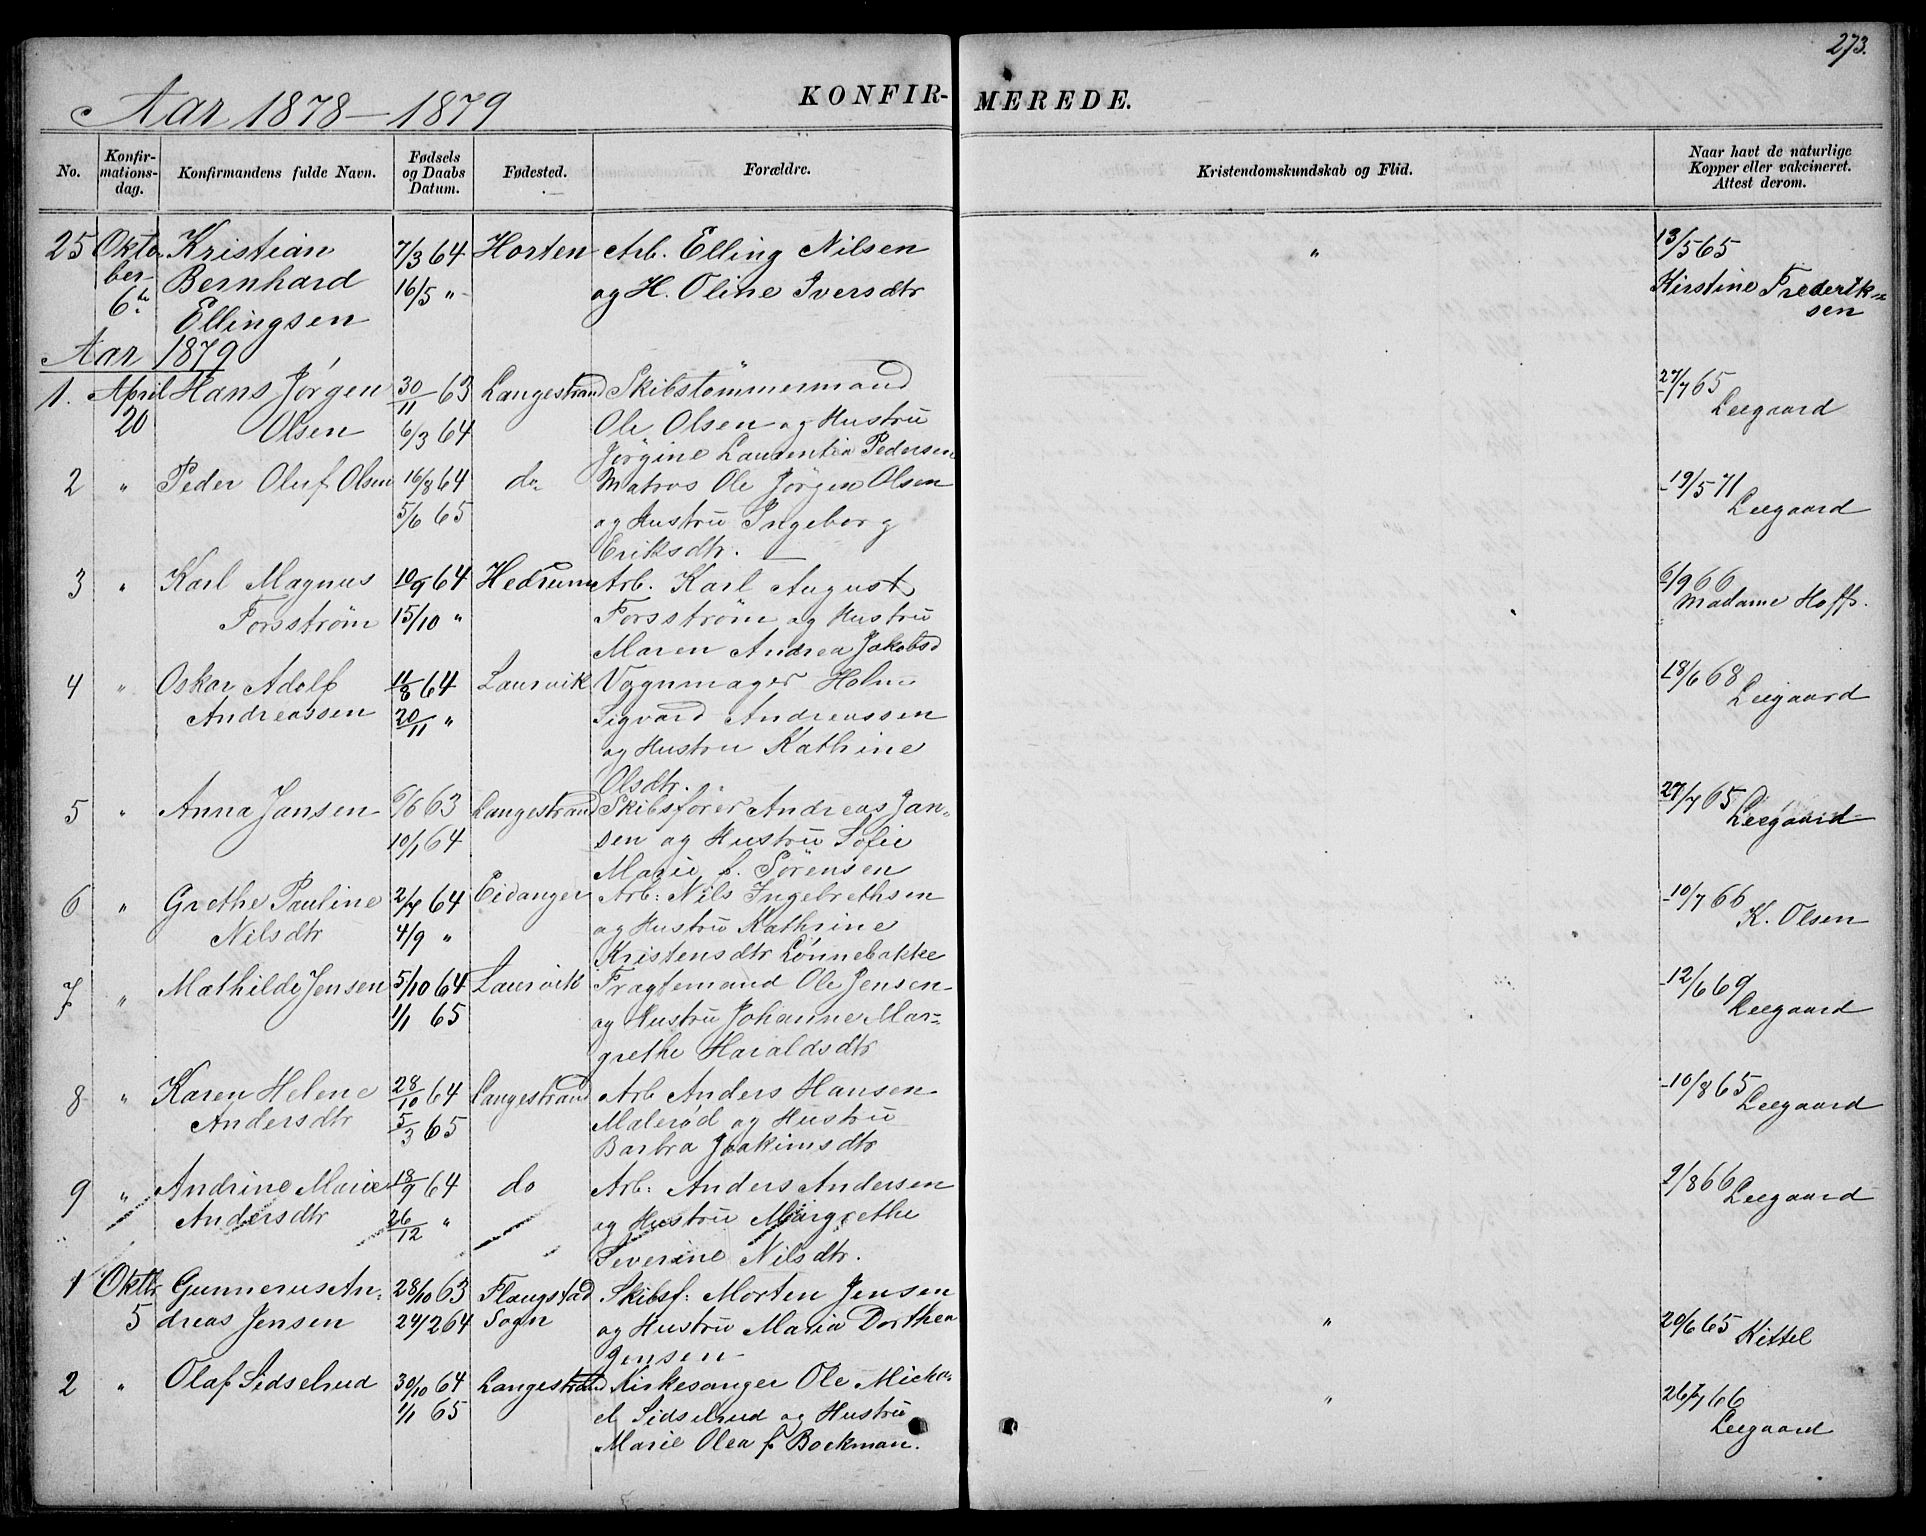 273.
Aar 1878-1879
KONFIR-MEREDE.
No.
Konfir-
mations-
dag.
Konfirmandens fulde Navn.
Fødsels
og Daabs
Datum.
Fødested.
Forældre.
Kristendomskundskab og Flid.
Naar havt de naturlige
Kopper eller vakcineret.
Attest derom.
25 Okto- Kristian 7/3 64 Horten Arb. Elling Nilsen " 13/5 65
ber Bernhard 16/5 " og H. Oline Iversdtr Kirstine Frederik=
6te Ellingsen sen
Aar 1879
1. April Hans Jørgen 30/11 63 Langestrand Skibstømmermand 27/7 65
20 Olsen 6/3 64 Ole Olsen og Hustru Leegaard
Jørgine Laurentia Pedersen
2 " Peder Oluf Olsen 16/8 64 do Matros Ole Jørgen Olsen 19/5 71
5/6 65 og Hustru Ingeborg Leegaard
Eriksdtr.
3 " Karl Magnus 10/9 64 Hedrum Arb. Karl August 6/9 66
Forsstrøm 15/10 " Forsstrøm og Hustru Madame Hoff.
Maren Andrea Jakobsd
4 " Oskar Adolf 11/8 64 Laurvik Vognmager Holm 18/6 68
Andreassen 20/11 " Sigvard Andreassen Leegaard
og Hustru Kathrine
Olsdtr.
5 " Anna Jansen 63 Langestrand Skibsfører Andreas Jan= 27/7 65
10/1 64 sen og Hustru Sofie Leegaard
Marie f. Sørensen
6 " Grethe Pauline 2/7 64 Eidanger Arb: Nils Ingebrethsen 10/7 66
Nilsdtr 4/9 " og Hustru Kathrine K. Olsen
Kristensdtr Lønnebakke
7 " Mathilde Jensen 5/10 64 Laurvik Fragtemand Ole Jensen 12/6 69
1/1 65 og Hustru Johanne Mar= Leegaard
grethe Haraldsdtr
8 " Karen Helene 28/10 64 Langestrand Arb Anders Hansen 10/8 65
Andersdtr 5/3 65 Malerød og Hustru Leegaard
Barbra Joakimsdtr
9 " Andrine Marie 18/9 64 do Arb: Anders Andersen 2/8 66 Leegaard
Andersdtr 26/12 " og Hustru Margrethe
Severine Nilsdtr.
1 Oktbr Gunnerus An= 28/10 63 Flangstad Skibsf: Morten Jensen
5 dreas Jensen 24/2 64 Sogn og Hustru Maria Dorthea " 20/6 65 Kittel
Jensen
2 " Olaf Sidselrud 30/10 64 Langestrand Kirkesanger Ole Micha= " 26/7 66
1/1 65 el Sidselrud og Hustru Leegaard
Marie Olea f Bockman.